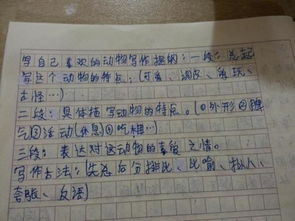 写自己喜欢的动物写作提纲:一段:总起
写这个动物的特点:(可爱、调皮、贪玩、
古怪…)
二段:具体描写动物的特点。(①外形②
③活动(休息)④吃…)
三段:表达对这动物的喜爱之情。
写作方法:(先总后分排比、比喻、拟人、
夸张、反语)